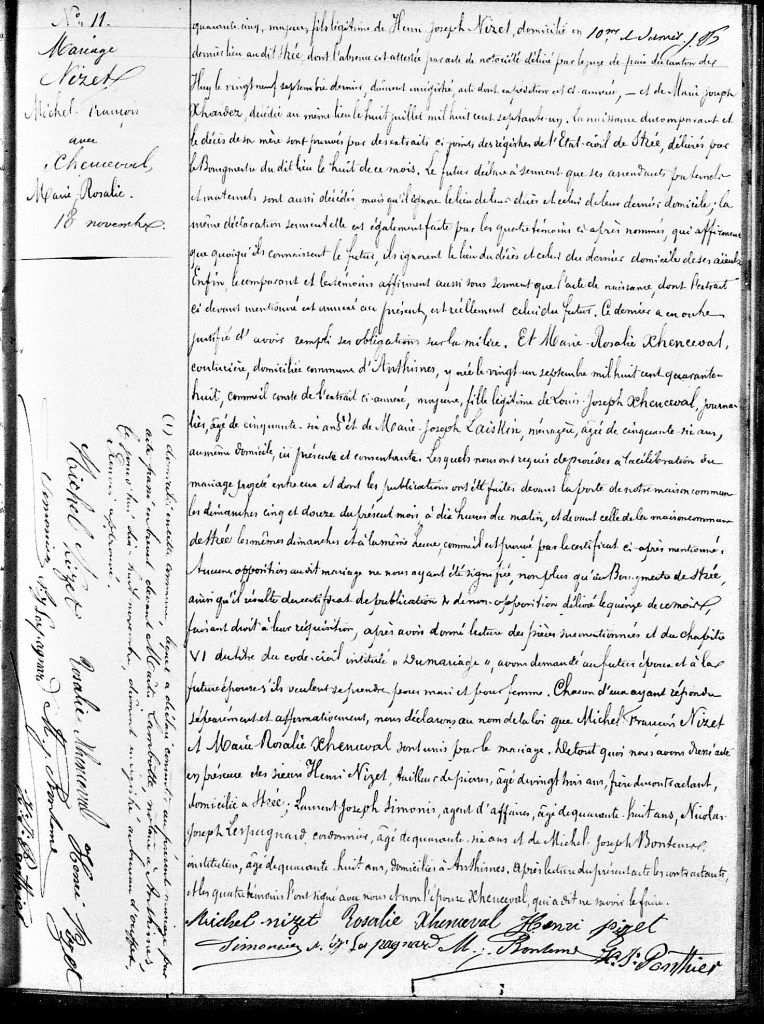 N° 11.
Mariage
Nizet
Michel François
avec
Xhenceval,
Marie Rosalie.
18 novembre.
quarante cinq, majeur, fils légitime de Henri Joseph Nizet, domicilié en
dernier lieu au dit Strée, dont l'absence est attestée par acte de notoriété délivré par le juge de paix du canton de
Huy le vingt neuf septembre dernier, dûment enregistré, acte dont expédition est ci-annexée, — et de Marie Joseph
Xhardez, décédée au même lieu le huit juillet mil huit cent septante-un. La naissance du comparant et
le décès de sa mère sont prouvés par des extraits ci-joints des régistres de l'Etat-civil de Strée, délivrés par
le Bourgmestre du dit lieu le huit de ce mois. Le futur déclare à serment que ses ascendants paternels
et maternels sont aussi décédés mais qu'il ignore le lieu de leur décès et celui de leur dernier domicile; la
même déclaration sermentelle est également faite par les quatre témoins ci après nommés, qui affirment
que quoiqu'ils connaissent le futur, ils ignorent le lieu du décès et celui du dernier domicile de ses aïeux.
Enfin, le comparant et les témoins affirment aussi sous serment que l'acte de naissance, dont l'extrait
ci devant mentionné est annexé au présent, est réellement celui du futur. Ce dernier a en outre
justifié d'avoir rempli ses obligations sur la milice. Et Marie-Rosalie Xhenceval,
couturière, domiciliée commune d'Anthisnes, y née le vingt-un septembre mil huit cent quarante-
huit, comme il conste de l'extrait ci-annexé, majeure, fille légitime de Louis-Joseph Xhenceval, journa-
lier, âgé de cinquante-six ans (1) et de Marie-Joseph Laiskin, ménagère, âgée de cinquante-six ans,
au même domicile, ici présente et consentante. Lesquels nous ont requis de procéder à la célébration du
mariage projeté entre eux et dont les publications ont été faites devant la porte de notre maison commune
les dimanches cinq et douze du présent mois à dix heures du matin, et devant celle de la maison commune
de Strée les mêmes dimanches et à la même heure, comme il est prouvé par le certificat ci-après mentionné.
Aucune opposition au dit mariage ne nous ayant été signifiée, non plus qu'au Bourgmestre de Strée,
ainsi qu'il résulte du certificat de publication & de non-opposition délivré le quinze de ce mois,
faisant droit à leur réquisition, après avoir donné lecture des pièces susmentionnées et du chapitre
VI du titre du code-civil intitulé « Du mariage », avons demandé au futur époux et à la
future épouse s'ils veulent se prendre pour mari et pour femme. Chacun d'eux ayant répondu
séparément et affirmativement, nous déclarons au nom de la loi que Michel François Nizet
et Marie Rosalie Xhenceval sont unis par le mariage. De tout quoi nous avons dressé acte
en présence des sieurs Henri Nizet, tailleur de pierres, âgé de vingt trois ans, frère du contractant,
domicilié à Strée; Laurent Joseph Simonis, agent d'affaires, âgé de quarante-huit ans, Nicolas
Joseph Lespagnard, cordonnier, âgé de quarante-six ans et de Michel-Joseph Bontems,
instituteur, âgé de quarante-huit ans, domiciliés à Anthisnes. Après lecture du présent acte les contractants,
et les quatre témoins l'ont signé avec nous et non l'épouse Xhenceval, qui a dit ne savoir le faire.
Michel nizet Rosalie Xhenceval Henri nizet
Lespagnard M. j. Bontems
Ponthier
(1) domicilié en cette commune, lequel a déclaré consentir au présent mariage par
acte passé en brevet devant Maître notaire à Anthisnes,
le jour dix huit novembre, dûment enregistré
Michel Nizet Rosalie Xhenceval Henri Nizet
Lespagnard M. j. Bontems
Ponthier